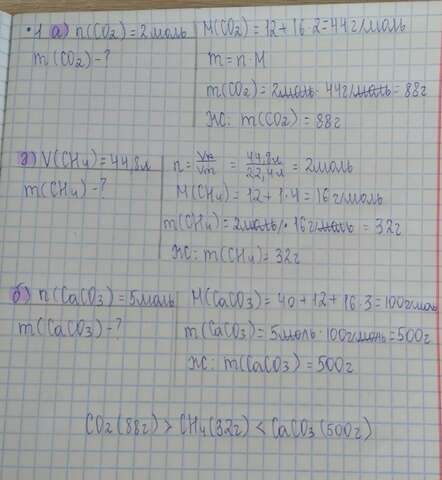 ·1 а) n(CO₂)=2моль
m(CO₂)-?
M(CO₂)=12+16·2=44г/моль
m=n·M
m(CO₂)=2моль·44г/моль=88г
Жс: m(CO₂)=88г
ә) V(CH₄)=44,8л
m(CH₄)-?
n=Vн/Vm=44,8л/22,4л=2моль
M(CH₄)=12+1·4=16г/моль
m(CH₄)=2моль·16г/моль=32г
Жс: m(CH₄)=32г
б) n(CaCO₃)=5моль
m(CaCO₃)-?
M(CaCO₃)=40+12+16·3=100г/моль
m(CaCO₃)=5моль·100г/моль=500г
Жс: m(CaCO₃)=500г
CO₂(88г)>CH₄(32г)<CaCO₃(500г)